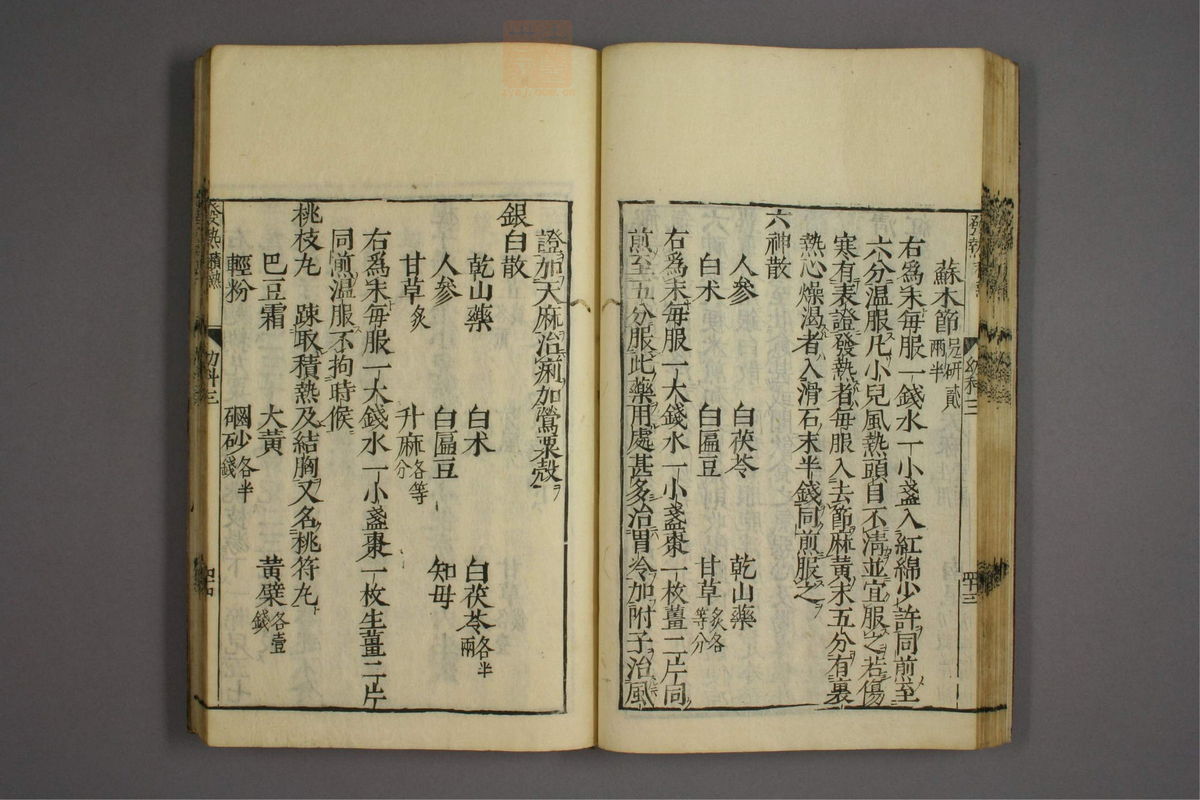 蘇木節 另研貳兩半
右爲末每服一錢水一小盞入紅綿少許同煎至
六分溫服凡小兒風熱頭目不清並宜服之若傷
寒有表證發熱者每服入去節麻黃末五分有裏
熱心燥渴者入滑石末半錢同煎服之
六神散
人參 白茯苓 乾山藥
白朮 白匾豆 甘草炙各等分
右爲末每服一大錢水一小盞棗一枚薑二片同
煎至五分服此藥用處甚多治胃冷加附子治風
證加天麻治痢加鶯粟殼
銀白散
乾山藥 白朮 白茯苓各半兩
人參 白匾豆 知母
甘草炙 升麻各等分
右爲末每服一大錢水一小盞棗一枚生薑二片
同煎溫服不拘時候
桃枝丸 踈取積熱及結胸又名桃符丸
巴豆霜 大黃 黃檗各壹錢
輕粉 硇砂各半錢
幼科三